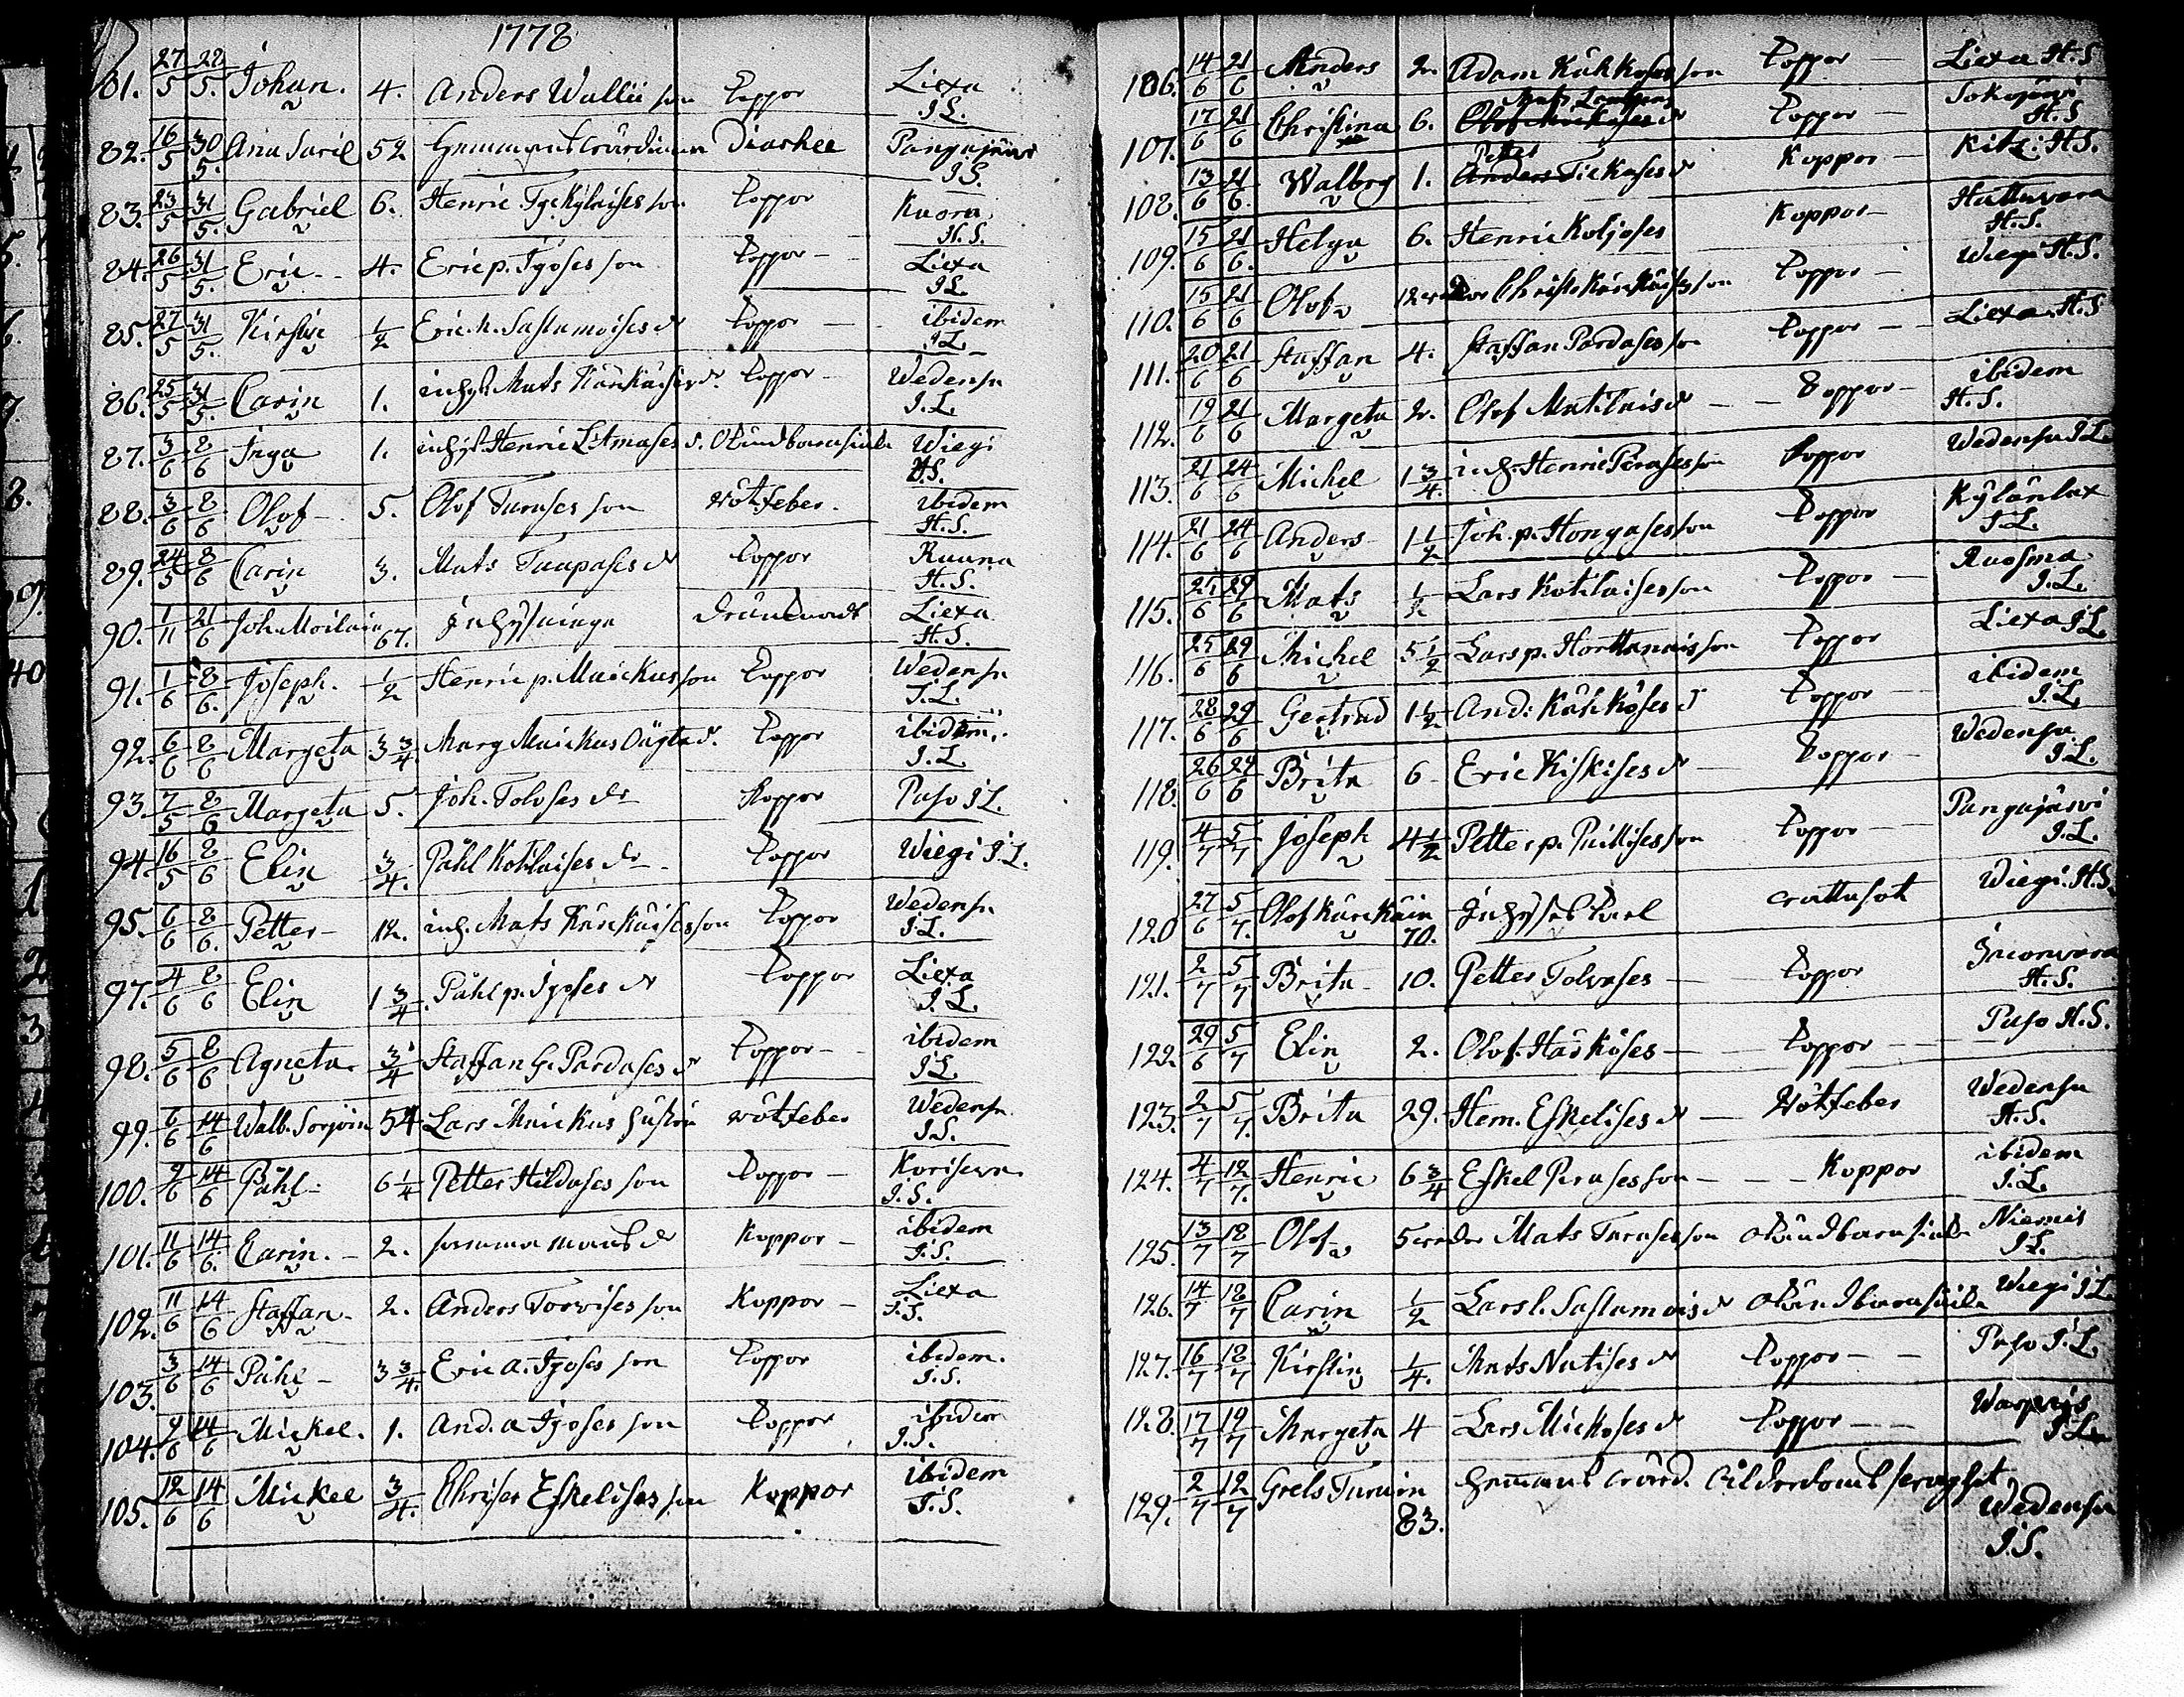 1778
81. 27/5 28/5. Johan. 4. Anders Wallii son Coppor Liexa J.L.
82. 16/5 30/5. Ana Saril 52 Hemmans Diarhee Pangajärvi J.S.
83. 23/5 31/5. Gabriel 6. Henric son Coppor Kuora H.S.
84. 26/5 31/5. Eric 4. Eric p. Igoses son Coppor Liexa J.L.
85. 27/5 31/5. Kirstin 1/2 Eric Saslamoises dr Coppor ibidem J.L.
86. 25/5 31/5. Carin 1. inhys. Mats Kärkäises dr. Coppor Wedensu J.L.
87. 3/6 8/6 Inga 1. inhys. Henric d. Okänd barnsiukd. Wiegi H.S.
88. 3/6 8/6 Olof 5. Olof Turuses son Rötfeber. ibidem H.S.
89. 24/5 8/6 Carin 3. Mats dr Coppor Ruuna H.S.
90. 1/11 21/6 Joh. Moilain 67. Inhysninge Liexa H.S.
91. 1/6 8/6. Joseph. 1/2 Henric p. Muickus son Coppor Wedensu J.L.
92. 6/6 8/6 Margeta 3 3/4. Marg Muickus d. Coppor ibidem. J.L.
93. 7/5 8/6 Margeta 5. Joh. Tolvases dr Koppor Paso J.L.
94. 16/5 8/6 Elin 3/4. Påhl Kotilaises dr Coppor Wiegi J.L.
95. 6/6 8/6. Petter 12. inh. Mats Kärkäises son Coppor Wedensu J.L.
97. 4/6 8/6 Elin 1 3/4 Påhl p. Igoses dr Coppor Liexa J.L.
98. 5/6 8/6 Agneta 3/4 Staffan Pardases dr Coppor ibidem J.L.
99. 6/6 14/6 Walb. Sorjoin 54 Lars Muickus hustru Rötfeber Wedensu J.S.
100. 9/6 14/6 Påhl 6 1/4 Petter Hildases son Coppor Korisewa J.S.
101. 11/6 14/6. Carin. 2. samma mans dr Koppor ibidem J.S.
102. 11/6 14/6 Staffan 2. Anders Torvises son Koppor Liexa J.S.
103. 3/6 14/6 Påhl 3 3/4. Eric a. Igoses son Coppor ibidem. J.S.
104. 9/6 14/6 Mickel. 1. And. a Igoses son Coppor ibidem J.S.
105. 12/6 14/6 Mickel 3/4. Chrisr Eskelises son Koppor ibidem J.S.
106. 14/6 21/6 Anders 2. Adam Kåkkoses son Coppor Liexa H.S.
107. 17/6 21/6 Christina 6. Mats dr Coppor Sokojärvi H.S.
108. 13/6 21/6. Walbrg 1. Petter Tickases dr Koppor Kitzi H.S.
109. 15/6 21/6. Helga 6. Henric Koljoses Koppor Hattuvara H.S.
110. 15/6 21/6 Olof 12 Christ. Kärkäises son Coppor Wiegi H.S.
111. 20/6 21/6 Staffan 4. Staffan Pardases son Coppor Liexa H.S.
112. 19/6 21/6 Margeta 2. Olof dr Coppor ibidem H.S.
113. 21/6 24/6 Michel 1 3/4. inh. Henric Pirases son Coppor Wedensu J.L.
114. 21/6 24/6 Anders 1 1/2 Joh. p. Hongases son Coppor Kylänlax J.L.
115. 25/6 29/6 Mats 1/2 Lars Kotilaises son Coppor Ruosma J.L.
116. 25/6 29/6 Michel 5 1/2 Lars p. son Coppor Liexa J.L.
117. 28/6 29/6 Gertrud 1 1/2 And: Kåkköses d Coppor ibidem J.L.
118. 26/6 29/6 Brita 6 Eric Kiskises dr Coppor Wedensu J.L.
119. 4/7 5/7 Joseph 4 1/2 Petter p. son Coppor Pangajärvi J.L.
120 27/6 5/7. Olof Kärckäin 70. Inhyses Karl Wiegi. H.S.
121. 2/7 5/7 Brita 10. Petter Tolvases Coppor H.S.
122. 29/6 5/7 Elin 2. Olof Harköses Coppor Paso H.S.
123. 2/7 5/7. Brita 29. Hem. Eskelises dr Rötfeber Wedensu H.S.
124. 4/7 12/7. Henric 6 3/4 Eskel Pirases son Koppor ibidem J.L.
125. 13/7 18/7 Olof 5 Mats Turuses son okänd barnsiukd. Niemis J.L.
126. 14/7 18/7 Carin 1/2 Lars l. Saslamois dr okänd barnsiukd. Wiegi J.L.
127. 16/7 18/7 Kirstin 1/4. Mats Nutises dr Coppor Paso J.L.
128. 17/7 19/7 Margeta 4 Lars Mickoses dr Coppor J.L.
129. 2/7 12/7 Grels Turuin 83. Hemmans Ålderdoms Wedensu J.S.